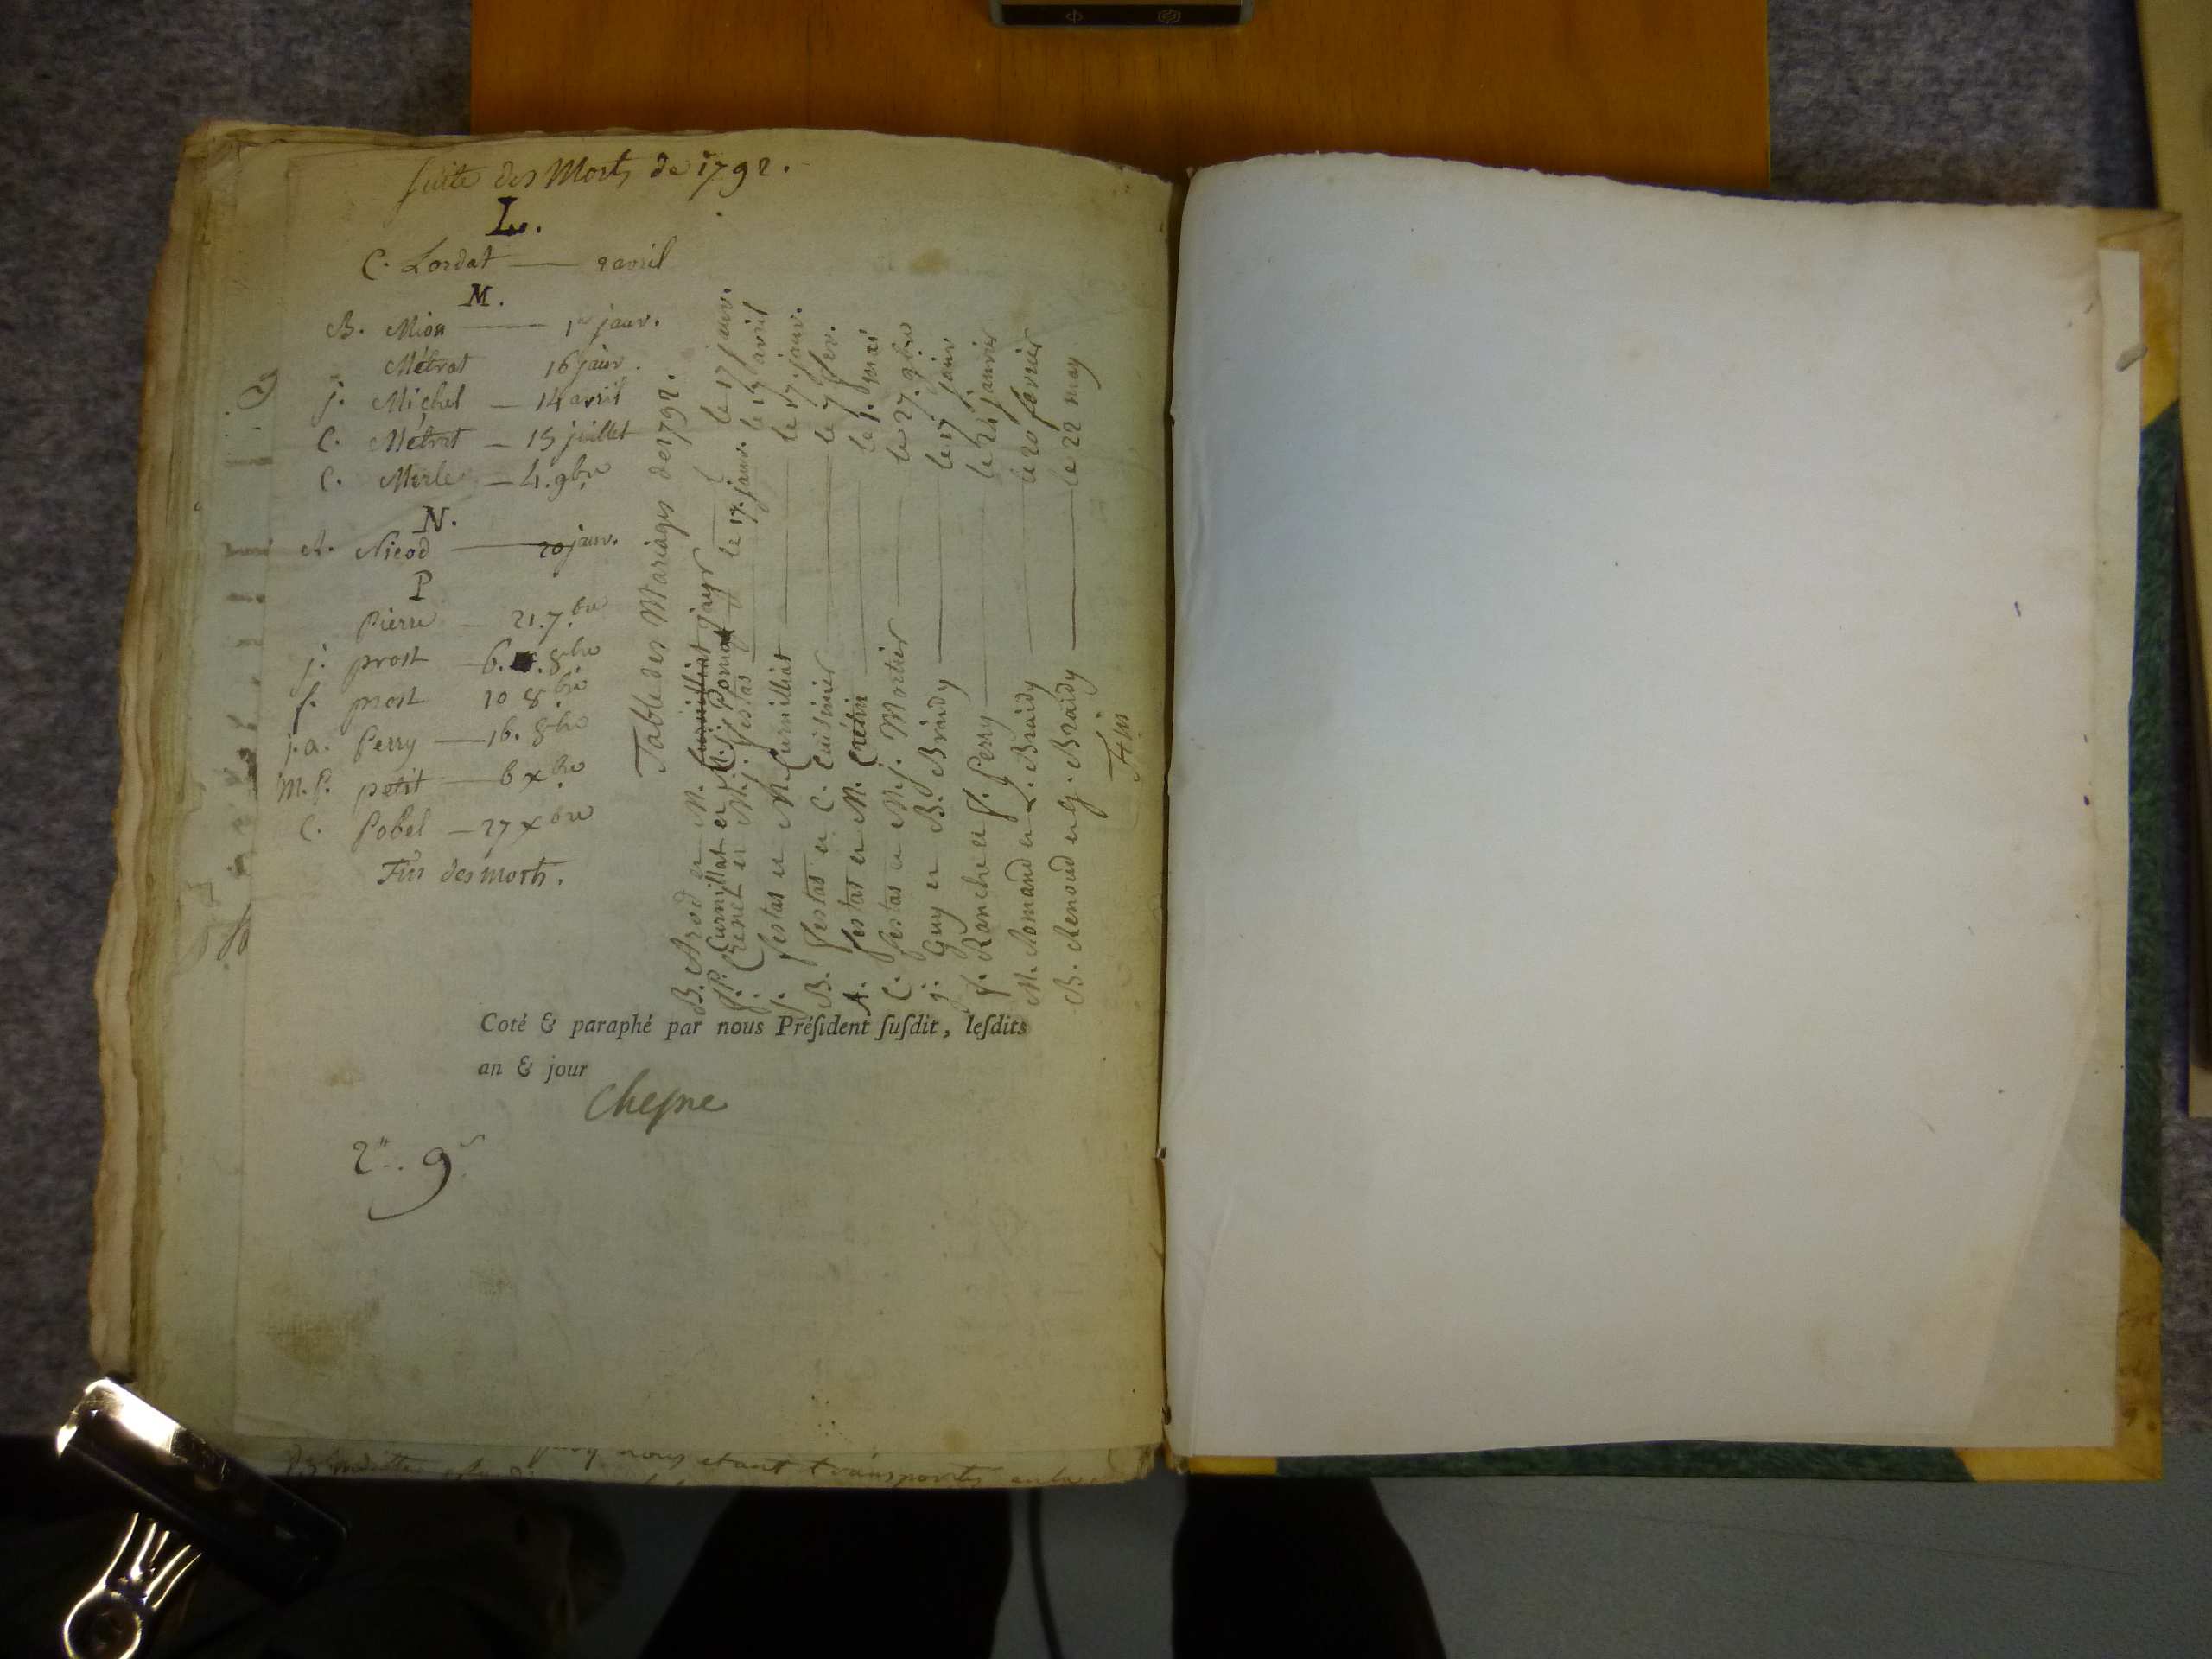 suite des Morts de 1792.
L.
C. Lordat — 9 avril
M.
B. Mion — 1er janv.
Métrat 16 janv.
j. Michel — 14 avril
C. Métrat — 15 juillet
C. Merle — 4. 9bre
N.
A. Nicod — 20 janv.
P
Pierre — 21. 7.bre
j. prost — 6. 8bre
f. prost 10 8.bre
j. a. Perry — 16. 8bre
M. P. petit — 6 xbre
C. Pobel — 27 xbre
Fin des morts.
Table des Mariages de 1792.
B. Arod et M. Curnilliat jayr — le 17 janv.
Curnillat et le 17. janv.
j. Crenet et M. j. festas — le 17 avril
j. festas et M. Curnilliat — le 17. janv.
B. festas et C. Cuisinier — le 7 fev.
A. festas et M. Cretin — le 1. mai
C. festas et M. j. Mortier — le 27. 9bre
j. Guy et B. Braidy — le 17 janv
f. Ranche et f. Perry — le 24 janvier
M. Romand et L. Braidy — le 20 fevrier
B. Renoud et g. Braidy — le 22 may
Fin
Coté & paraphé par nous Préſident ſuſdit, leſdits
an & jour
Chesne
nous etant transportés